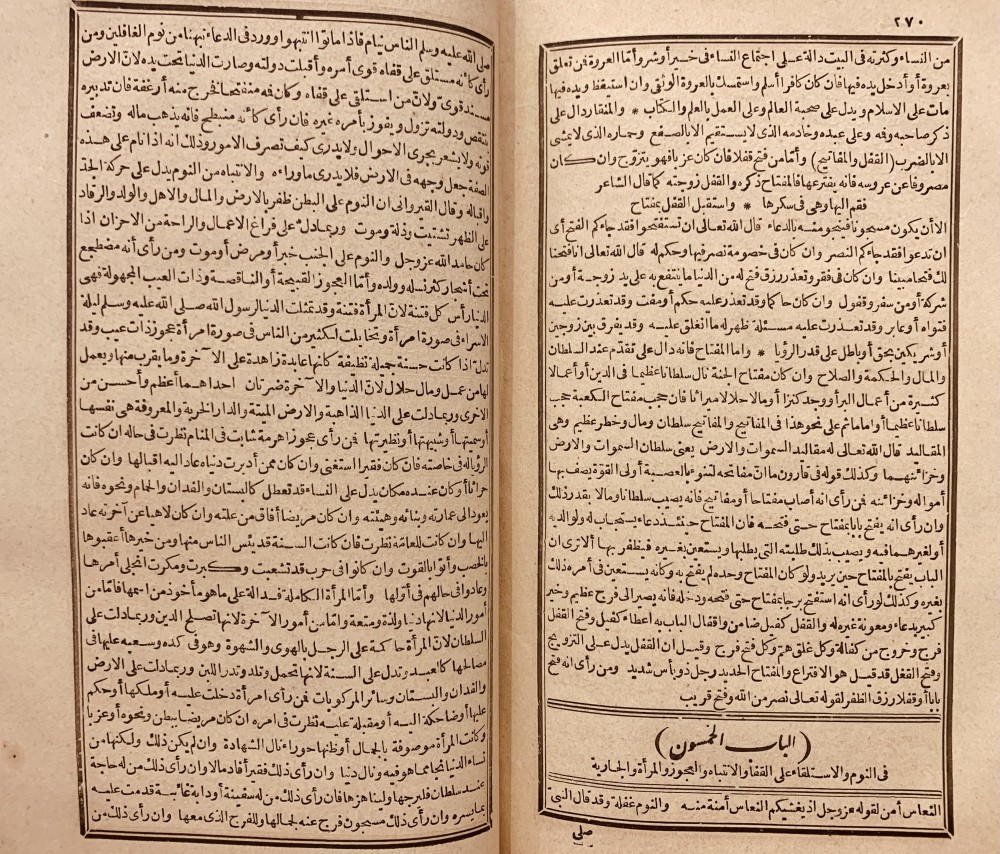 ٢٧٠
من النساء وكثرته فى البيت دالة على اجتماع النساء فى خير أو شر وأما العروة فن تعلق
بعروة أو أدخل يده فيها فان كان كافرا أسلم واستمسك بالعروة الوثقى وان استيقظ ويده فيها
مات على الاسلام ويدل على صحبة العالم وعلى العمل بالعلم والكتاب * والمنقار دال على
ذكر صاحبه وفه وعلى عبده وخادمه الذى لا يستقيم الا بالصفع وحماره الذى لا يمشى
الا بالضرب (القفل والمفاتيح) وأما من فتح قفلا فان كان عزبا فهو يتزوج وان كان
مصروفا عن عروسه فانه يفترعها فالمفتاح ذكره والقفل زوجته كما قال الشاعر
فقم اليها وهى فى سكرها * واستقبل القفل بمفتاح
الا أن يكون مسجونا فينجو منه بالدعاء قال الله تعالى ان تستفتحوا فقد جاءكم الفتح أى
ان تدعوا فقد جاءكم النصر وان كان فى خصومة نصر فيها وحكم له قال الله تعالى انا فتحنا
لك فتحا مبينا وان كان فى فقر وتعذر رزق فتح له من الدنيا ما ينتفع به على يد زوجة أو من
شركة أو من سفر وقفول وان كان حاكما وقد تعذر عليه حكم أو مفت وقد تعذرت عليه
فتواه أو عابر وقد تعذرت عليه مسئلة ظهر له ما انغلق عليه وقد يفرق بين زوجين
أو شريكين بحق أو باطل على قدر الرؤيا * واما المفتاح فانه دال على تقدم عند السلطان
والمال والحكمة والصلاح وان كان مفتاح الجنة نال سلطانا عظيما فى الدين أو أعمالا
كثيرة من أعمال البر أو وجد كنزا أو مالا حلالا ميراثا فان حجب مفتاح الكعبة حجب
سلطانا عظيما أو اماما ثم على نحو هذا فى المفاتيح والمفاتيح سلطان ومال وخطر عظيم وهى
المقاليد قال الله تعالى له مقاليد السموات والارض يعنى سلطان السموات والارض
وخزائنهما وكذلك قوله فى قارون ما ان مفاتحه لتنوء بالعصبة أولى القوة يصف بها
أمواله وخزائنه فن رأى انه أصاب مفتاحا أو مفاتيح فانه يصيب سلطانا ومالا بقدر ذلك
وان رأى انه يفتح بابا بمفتاح حتى فتحه فان المفتاح حينئذ دعاء يستجاب له ولوالديه
أو لغيرهما فيه ويصيب بذلك طلبته التى يطلبها ويستعين بغيره فيظفر بها ألا ترى ان
الباب يفتح بالمفتاح حين يريد ولو كان المفتاح وحده لم يفتح به وكأنه يستعين فى أمره ذلك
بغيره وكذلك لو رأى انه استفتح برجا بمفتاح حتى فتحه ودخله فانه يصير الى فرج عظيم وخير
كبير بدعاء ومعونة غيره له والقفل كفيل ضامن واقفال الباب به اعطاء كفيل وفتح القفل
فرج وخروج من كفالة وكل غلق هم وكل فتح فرج وقيل ان القفل يدل على التزويج
وفتح القفل قد قيل هو الافتراع والمفتاح الحديد رجل ذو بأس شديد ومن رأى انه فتح
بابا أو قفلا رزق الظفر لقوله تعالى نصر من الله وفتح قريب
(الباب الخمسون)
فى النوم والاستلقاء على القفا والانتباه والعجوز والمرأة والجارية
النعاس أمن لقوله عز وجل اذ يغشيكم النعاس أمنة منه والنوم غفلة وقد قال النبى
صلى
صلى الله عليه وسلم الناس نيام فاذا ماتوا انتبهوا وورد فى الدعاء نبهنا من نوم الغافلين ومن
رأى كأنه مستلق على قفاه قوى أمره وأقبلت دولته وصارت الدنيا تحت يده لان الارض
مسند قوى ولان من استلقى على قفاه وكان فه منفتحا فخرج منه أرغفة فان تدبيره
ينتقص ودولته تزول ويفوز بأمره غيره فان رأى كأنه منبطح فانه يذهب ماله وتضعف
قوته ولا يشعر بجرى الاحوال ولا يدرى كيف تصرف الامور وذلك انه اذا نام على هذه
الصفة جعل وجهه فى الارض فلا يدرى ما وراءه والانتباه من النوم يدل على حركة الجد
واقباله وقال القيروانى ان النوم على البطن ظفر بالارض والمال والاهل والولد والرقاد
على الظهر تشتيت وذلة وموت وربما دل على فراغ الاعمال والراحة من الاحزان اذا
كان حامد الله عز وجل والنوم على الجنب خير أو مرض أو موت ومن رأى أنه مضطجع
تحت أشجار كثر نسله وولده وأما العجوز القبيحة أو الناقصة وذات العيب المجهولة فهى
الدنيا رأس كل فتنة لان المرأة فتنة وقد تمثلت الدنيا لرسول الله صلى الله عليه وسلم ليلة
الاسراء فى صورة امرأة وتخايلت لكثير من الناس فى صورة امرأة عجوز ذات عيب وقد
تدل اذا كانت حسنة جميلة نظيفة كأنها عابدة زاهدة على الآخرة وما يقرب منها ويعمل
لها من عمل ومال حلال لان الدنيا والآخرة ضرتان احداهما أعظم وأحسن من
الاخرى وربما دلت على الدنيا الذاهبة والارض الميتة والدار الخربة والمعروفة هى نفسها
أو سميتها أو شبيهتها أو نظيرتها فن رأى عجوزا هرمة شابت فى المنام نظرت فى حاله ان كانت
الرؤيا له فى خاصته فان كان فقيرا استغنى وان كان ممن أدبرت دنياه عاد اليه اقبالها وان كان
حراثا أو كان عنده مكان يدل على النساء قد تعطل كالبستان والفدان والحمام ونحوه فانه
يعود الى عمارته وبنائه وهيئته وان كان مريضا أفاق من علته وان كان لاهيا عن آخرته عاد
اليها وان كانت للعامة نظرت فان كانت السنة قد يئس الناس منها ومن خيرها أعقبوا
بالخصب وأتوا بالقوت وان كانوا فى حرب قد تشعبت وكبرت ومكرت انجلى أمرها
وعادوا فى حالهم فى أولها وأما المرأة الكاملة فدالة على ما هو مأخوذ من اسمها فاما من
أمور الدنيا لانها دنيا ولذة ومتعة واما من أمور الآخرة لانها تصلح الدين وربما دلت على
السلطان لان المرأة حاكمة على الرجل بالهوى والشهوة وهو فى كده وسعيه عليها فى
مصالحها كالعبد وتدل على السنة لانها تحمل وتلد وتدر اللبن وربما دلت على الارض
والفدان والبستان وسائر المركوبات فن رأى امرأة دخلت عليه أو ملكها أو حكم
عليها أو ضاحكة اليه أو مقبلة عليه نظرت فى امره ان كان مريضا ببطن ونحوه أو عزبا
وكانت المرأة موصوفة بالجمال أو ظنها حوراء نال الشهادة وان لم يكن ذلك ولكنها من
نساء الدنيا نجا مما هو فيه ونال دنيا وان رأى ذلك فقير أفاد مالا وان رأى ذلك من له حاجة
عند سلطان فليرجها ولينا هزها فان رأى ذلك من له سفينة أو دابة غائبة قدمت عليه
بما يسره وان رأى ذلك مسجون فرج عنه لجمالها وللفرج الذى معها وان رأى ذلك من